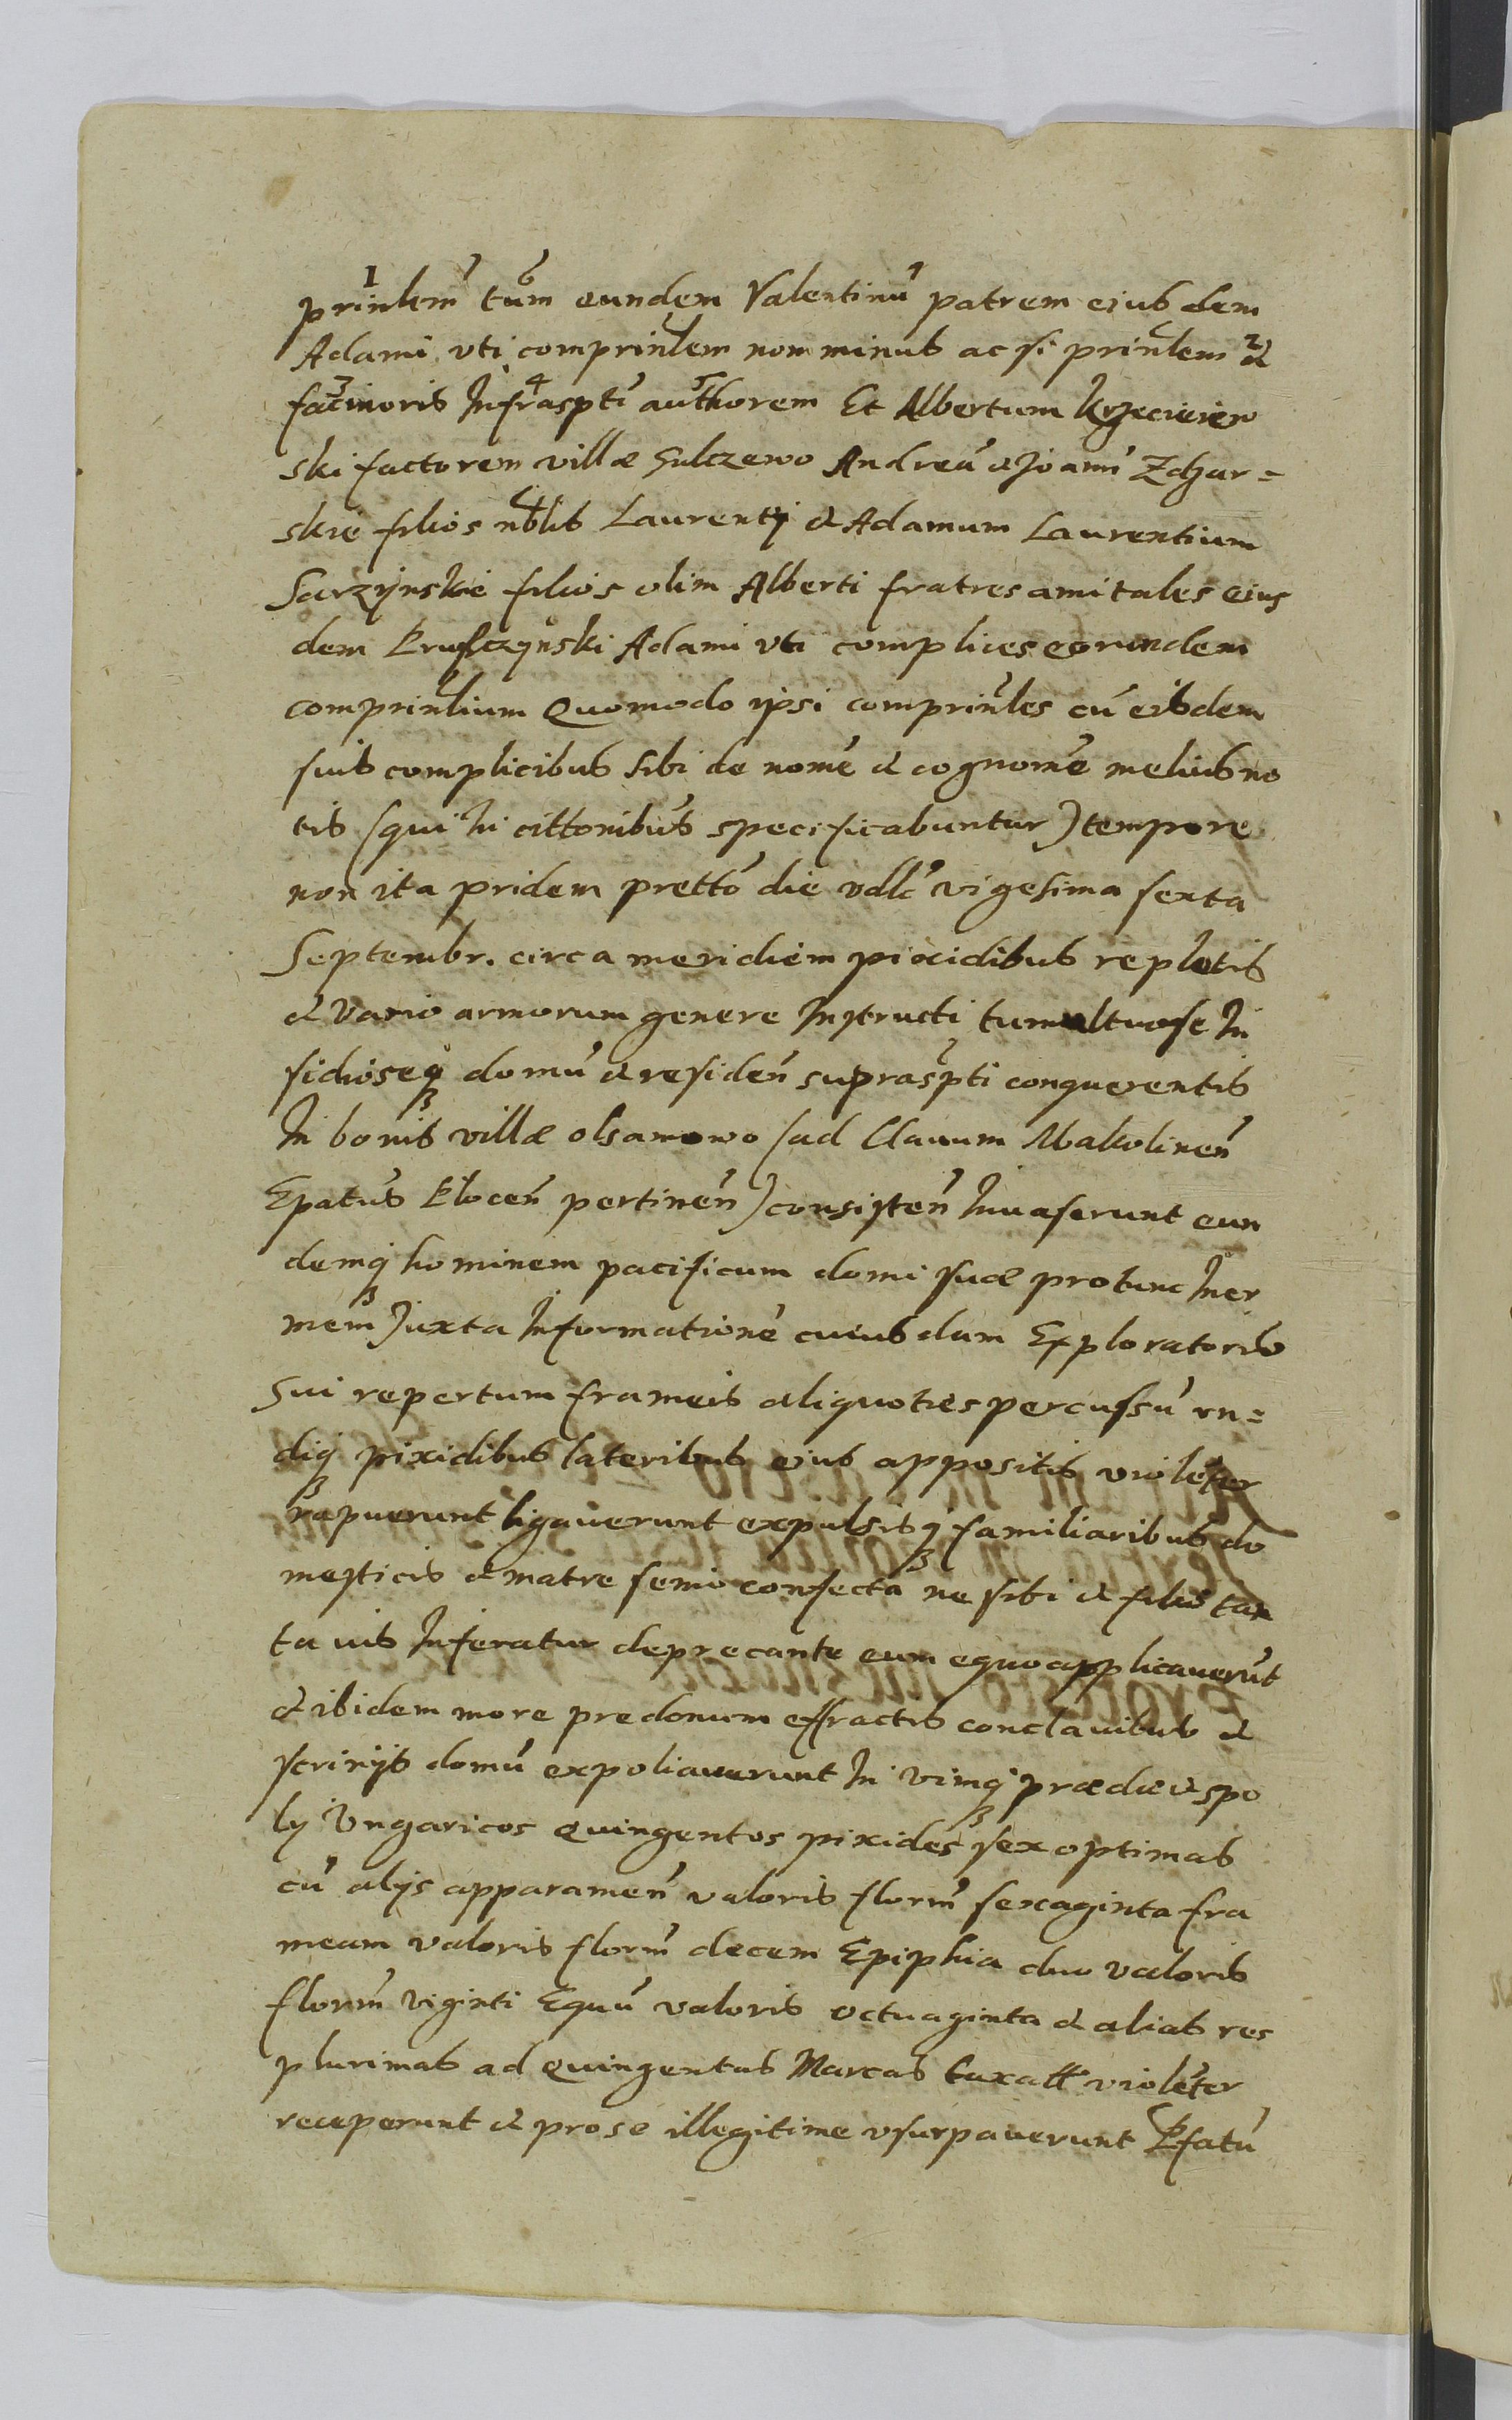 prinlem̃ tum eundem Valentinũ patrem eiusdem
Adami uti comprinlem non minus ac si prinlem &
facinoris Infraspti authorem Et Albertum Krzeciew
ski factorem villæ Sulczewo Andreã & Joanñ Zdzar=
skie filios nblis Laurentÿ & Adamum Laurentium
Sarzÿnskie filios olim Alberti fratres amitales eius
dem Krusczÿnski Adami uti complices eorundem
comprinlium Quomodo ipsi comprinles cũ eisdem
suis complicibus sibi de nomẽ & cognomẽ melius no
tis (qui In cittonibus specificabuntur) tempore
non ita pridem prettõ die vdlt vigesima sexta
Septembr. circa meridiem pixidibus repletis
& vario armorum genere Instructi tumultuose In
sidioseq3 domũ & residen̄ supraspti conquerentis
In bonis villæ olsamowo (ad Clavum Makolinen̄
Epatus Plocen̄ pertinen̄) consisten̄ Invaserunt eun
demq3 hominem pacificum domi suæ protunc Iner
mem Juxta Informationẽ cuiusdam Exploratoris
Sui repertum frameis aliquoties percussũ un=
diq3 pixidibus lateribus eius appositis violẽter
rapuerunt ligaverunt expulsisq3 familiaribus do
mesticis & matre senio confecta ne sibi & filio tan
ta vis Inferatur deprecante eum equo applicaverũt
& ibidem more predonum effractis conclavibus &
scrinÿs domũ expoliaverunt In vimq3 prædæ & spo
lÿ Ungaricos quingentos pixides sex optimas
cũ alÿs apparamen̄ valoris florm̃ sexaginta fra
meam valoris florm̃ decem Epiphia duo valoris
florm̃ viginti Equũ valoris octuaginta & alias res
plurimas ad quingentas Marcas taxatt violẽter
receperunt & pro se illegitime usurpaverunt Pfatũ